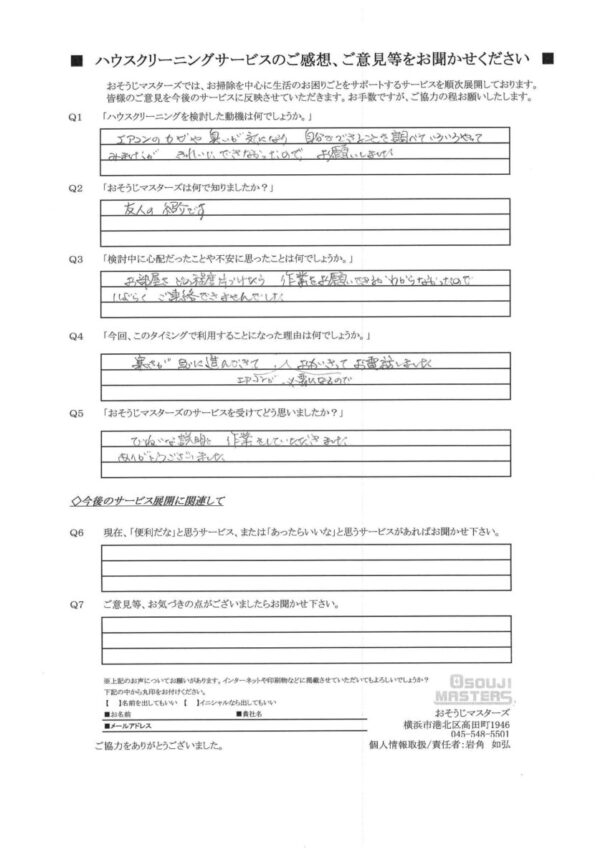 ■ ハウスクリーニングサービスのご感想、ご意見等をお聞かせください ■
おそうじマスターズでは、お掃除を中心に生活のお困りごとをサポートするサービスを順次展開しております。
皆様のご意見を今後のサービスに反映させていただきます。お手数ですが、ご協力の程お願いいたします。
Q1 「ハウスクリーニングを検討した動機は何でしょうか。」
エアコンのカビや臭いが気になり 自分ができることを調べていろいろやって
みましたが きれいにできなかったので お願いしました
Q2 「おそうじマスターズは何で知りましたか？」
友人の紹介です
Q3 「検討中に心配だったことや不安に思ったことは何でしょうか。」
お部屋をどの程度片づけたら 作業をお願いできるかわからなかったので
しばらく ご連絡できませんでした
Q4 「今回、このタイミングで利用することになった理由は何でしょうか。」
寒さが 急に進んできて、 お電話しました
エアコンが 必要になるので
Q5 「おそうじマスターズのサービスを受けてどう思いましたか？」
ていねいな説明と 作業をしていただきました
ありがとうございました
◇今後のサービス展開に関連して
Q6 現在、「便利だな」と思うサービス、または「あったらいいな」と思うサービスがあればお聞かせ下さい。
Q7 ご意見等、お気づきの点がございましたらお聞かせ下さい。
※上記のお声についてお願いがあります。インターネットや印刷物などに掲載させていただいてもよろしいでしょうか？
下記の中から丸印をお付けください。
【 】名前を出してもいい 【 】イニシャルなら出してもいい
■お名前 ■貴社名
■メールアドレス
ご協力をありがとうございました。
OSOUJI
MASTERS
おそうじマスターズ
横浜市港北区高田町1946
045-548-5501
個人情報取扱/責任者:岩角 如弘